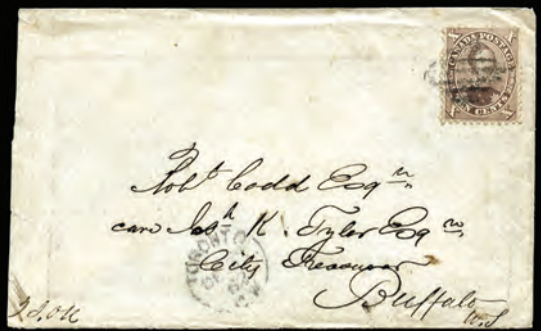 CANADA POSTAGE
X X
TEN CENTS
X X
Robt Codd Esqre
care Josh K. Tyler Esqre
City Treasurer
Buffalo
TORONTO